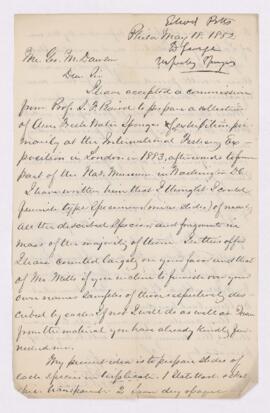 Edward Potts
Phila May 18. 1882.
Dr George
Mr. Geo. M. Dawson
Dear Sir
I have accepted a commission
from Prof. S. F. Baird to prepare a collection
of Am. Fresh Water Sponges for exhibition pri-
marily at the International Fishery Ex-
position in London in 1883, afterwards to form
part of the Nat. Museum in Washington D.C.
I have written him that I thought I could
furnish type specimens (on slides) of nearly
all the described species and fragments in
mass of the majority of them. In this offer
I have counted largely on your favor and that
of Mr. Mills if you incline to furnish over your
own names samples of those respectively des-
cribed by each. If not I will do as well as I can
from the material you have already kindly fur-
nished me.
My present idea is to prepare slides of
each species in triplicate. 1
transparent 2 same dry opaque